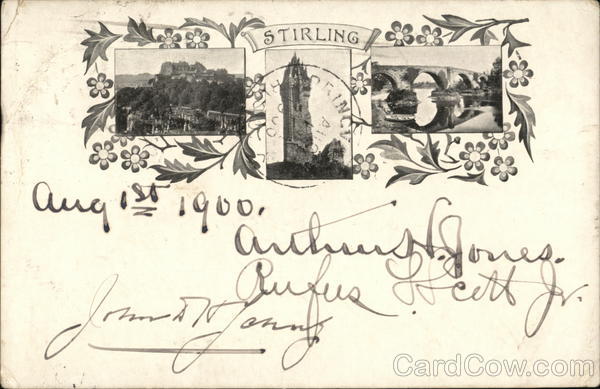 STIRLING
Aug 1st 1900.
Arthur H. Jones.
Rufus L Scott Jr.
John
CardCow.com